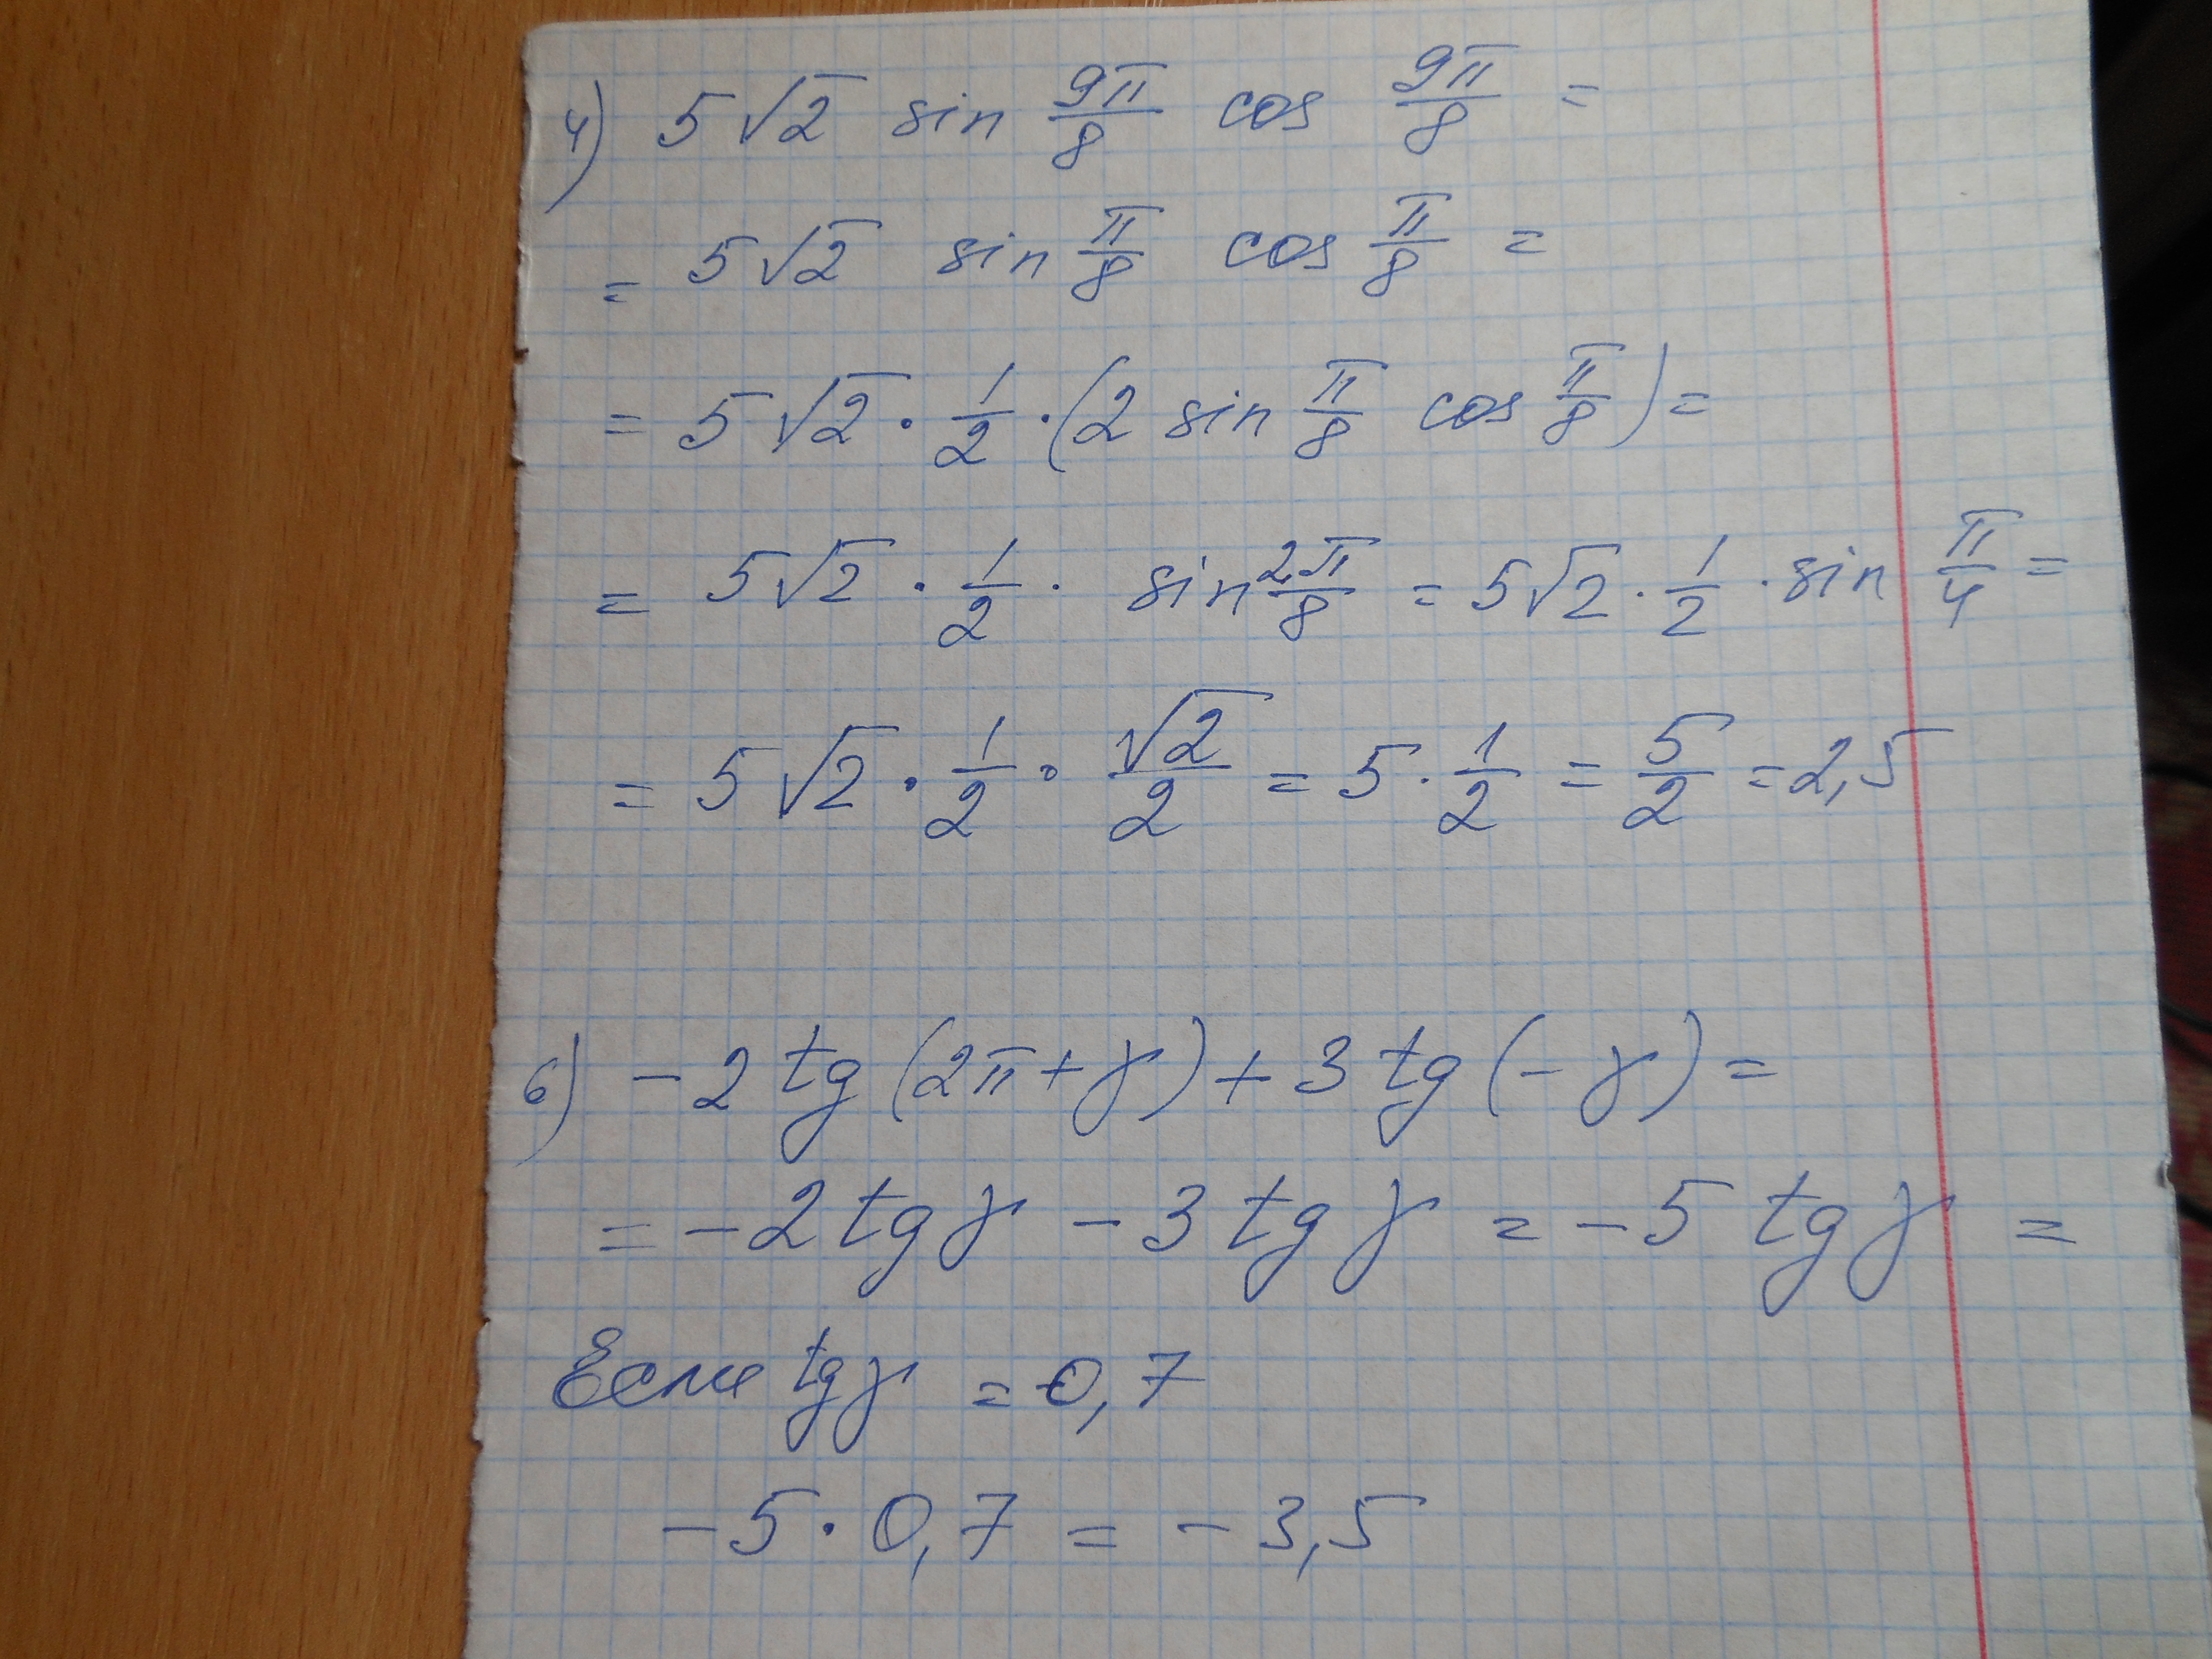 4) 5√2 sin 9π/8 cos 9π/8 =
= 5√2 sin π/8 cos π/8 =
= 5√2 · 1/2 · (2 sin π/8 cos π/8) =
= 5√2 · 1/2 · sin 2π/8 = 5√2 · 1/2 · sin π/4 =
= 5√2 · 1/2 · √2/2 = 5 · 1/2 = 5/2 = 2,5
6) -2 tg (2π + γ) + 3 tg (-γ) =
= -2 tg γ - 3 tg γ = -5 tg γ =
Если tg γ = 0,7
-5 · 0,7 = -3,5